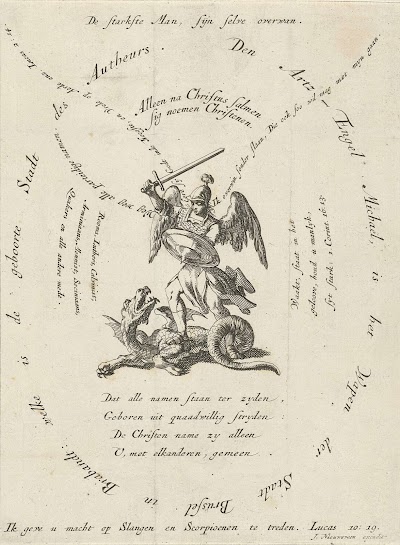 De starkste Man, sijn selve overwan.
Den Artz-Engel Michiel, is het Wapen der Stadt Brussel in Brabandt: welke is de geboorte Stadt Autheurs.
Alleen na Christus salmen
sig noemen Christenen.
Weg met alle partydige namen
Rooms, Luthers, Calvinist,
Arminiaan, Mennist, Sociniaan,
Quakers en alle andre mede.
Waakt, staat in het
geloove, houd u manlyk,
sijt sterk. 1 Corint. 16:13
Dat alle namen staan ter zyden,
Geboren uit quaadwillig stryden:
De Christen name zy alleen
U, met elkanderen, gemeen.
Ik geve u macht op Slangen en Scorpioenen te treden. Lucas 10:19.